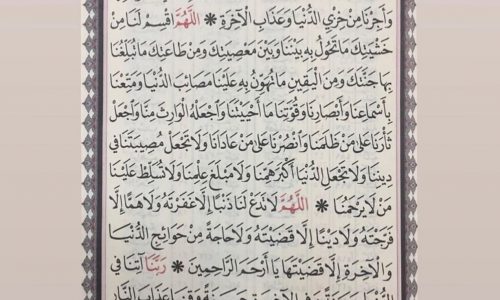 وَأَجِرْنَا مِنْ خِزْيِ الدُّنْيَا وَعَذَابِ الْآخِرَةِ * اَللّٰهُمَّ اقْسِمْ لَنَا مِنْ
خَشْيَتِكَ مَا تَحُولُ بِهِ بَيْنَنَا وَبَيْنَ مَعْصِيَتِكَ وَمِنْ طَاعَتِكَ مَا تُبَلِّغُنَا
بِهَا جَنَّتَكَ وَمِنَ الْيَقِينِ مَا تُهَوِّنُ بِهِ عَلَيْنَا مَصَائِبَ الدُّنْيَا وَمَتِّعْنَا
بِأَسْمَاعِنَا وَأَبْصَارِنَا وَقُوَّتِنَا مَا أَحْيَيْتَنَا وَاجْعَلْهُ الْوَارِثَ مِنَّا وَاجْعَلْ
ثَأْرَنَا عَلَى مَنْ ظَلَمَنَا وَانْصُرْنَا عَلَى مَنْ عَادَانَا وَلَا تَجْعَلْ مُصِيبَتَنَا فِي
دِينِنَا وَلَا تَجْعَلِ الدُّنْيَا أَكْبَرَ هَمِّنَا وَلَا مَبْلَغَ عِلْمِنَا وَلَا تُسَلِّطْ عَلَيْنَا
مَنْ لَا يَرْحَمُنَا * اَللّٰهُمَّ لَا تَدَعْ لَنَا ذَنْبًا إِلَّا غَفَرْتَهُ وَلَا هَمًّا إِلَّا
فَرَّجْتَهُ وَلَا دَيْنًا إِلَّا قَضَيْتَهُ وَلَا حَاجَةً مِنْ حَوَائِجِ الدُّنْيَا
وَالْآخِرَةِ إِلَّا قَضَيْتَهَا يَا أَرْحَمَ الرَّاحِمِينَ * رَبَّنَا آتِنَا فِي
الدُّنْيَا حَسَنَةً وَفِي الْآخِرَةِ حَسَنَةً وَقِنَا عَذَابَ النَّارِ